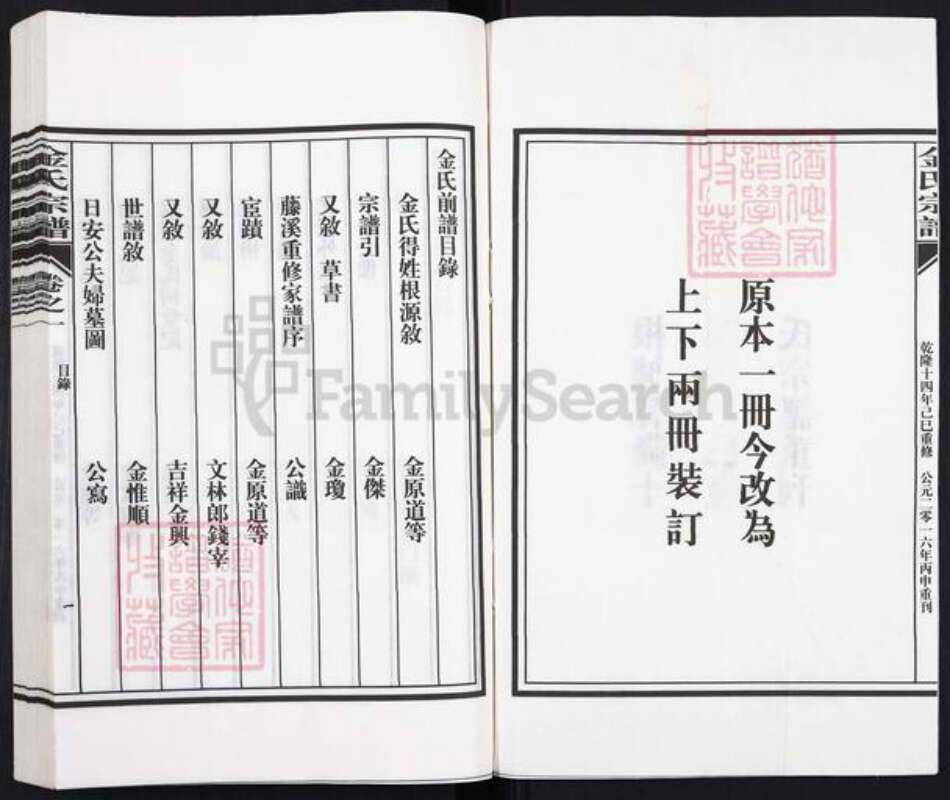 金氏宗譜
乾隆十四年己巳重修 公元二零一六年丙申重刊
原本一冊今改為
上下兩冊裝訂
金氏前譜目錄
金氏得姓根源敘 金原道等
宗譜引 金傑
又敘 草書 金瓊
藤溪重修家譜序 公識
宦蹟 金原道等
又敘 文林郎錢宰
又敘 吉祥金興
世譜敘 金惟順
日安公夫婦墓圖 公寫
金氏宗譜 卷之一 目錄 一
FamilySearch